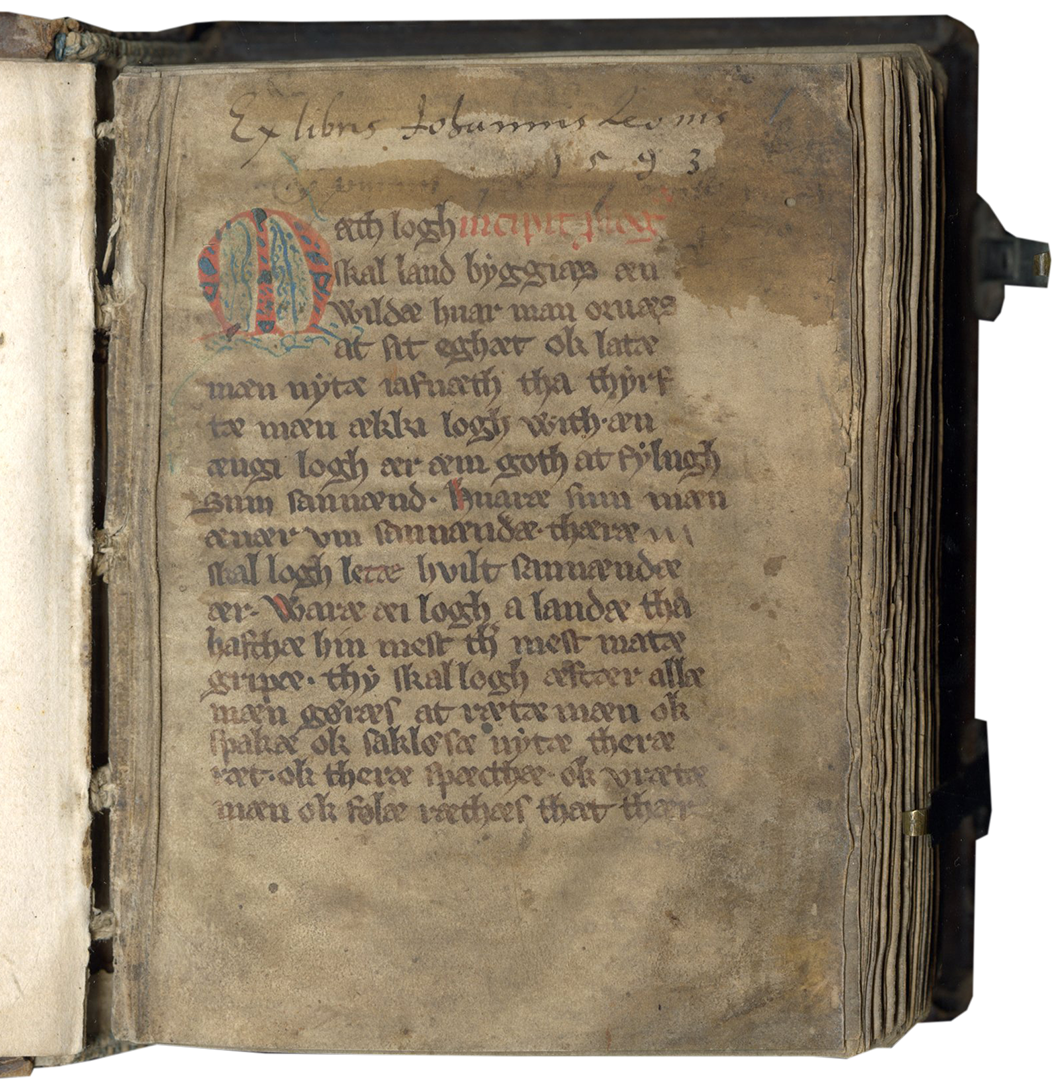 Ex libris Johannis Leonis
1593
Mæth logh incipit
skal land byggiæs æn
wildæ huar man oruæs
at sit eghæt ok latæ
mæn nytæ iafnæth tha thyrf
tæ mæn ækki logh with·æn
ængi logh ær æm goth at fylugh
sum sannænd· huaræ sum mæn
æuær um sannændæ·thæræ
skal logh letæ hvilt sannændæ
ær· Waræ æi logh a landæ tha
hafthæ hin mest th mest matæ
gripæ· thy skal logh æftær allæ
mæn gøræs at rætæ mæn ok
spakæ ok sakløsæ nytæ theræ
ræt·ok theræ spæcthæ· ok vrætæ
mæn ok folæ ræthæs that thær